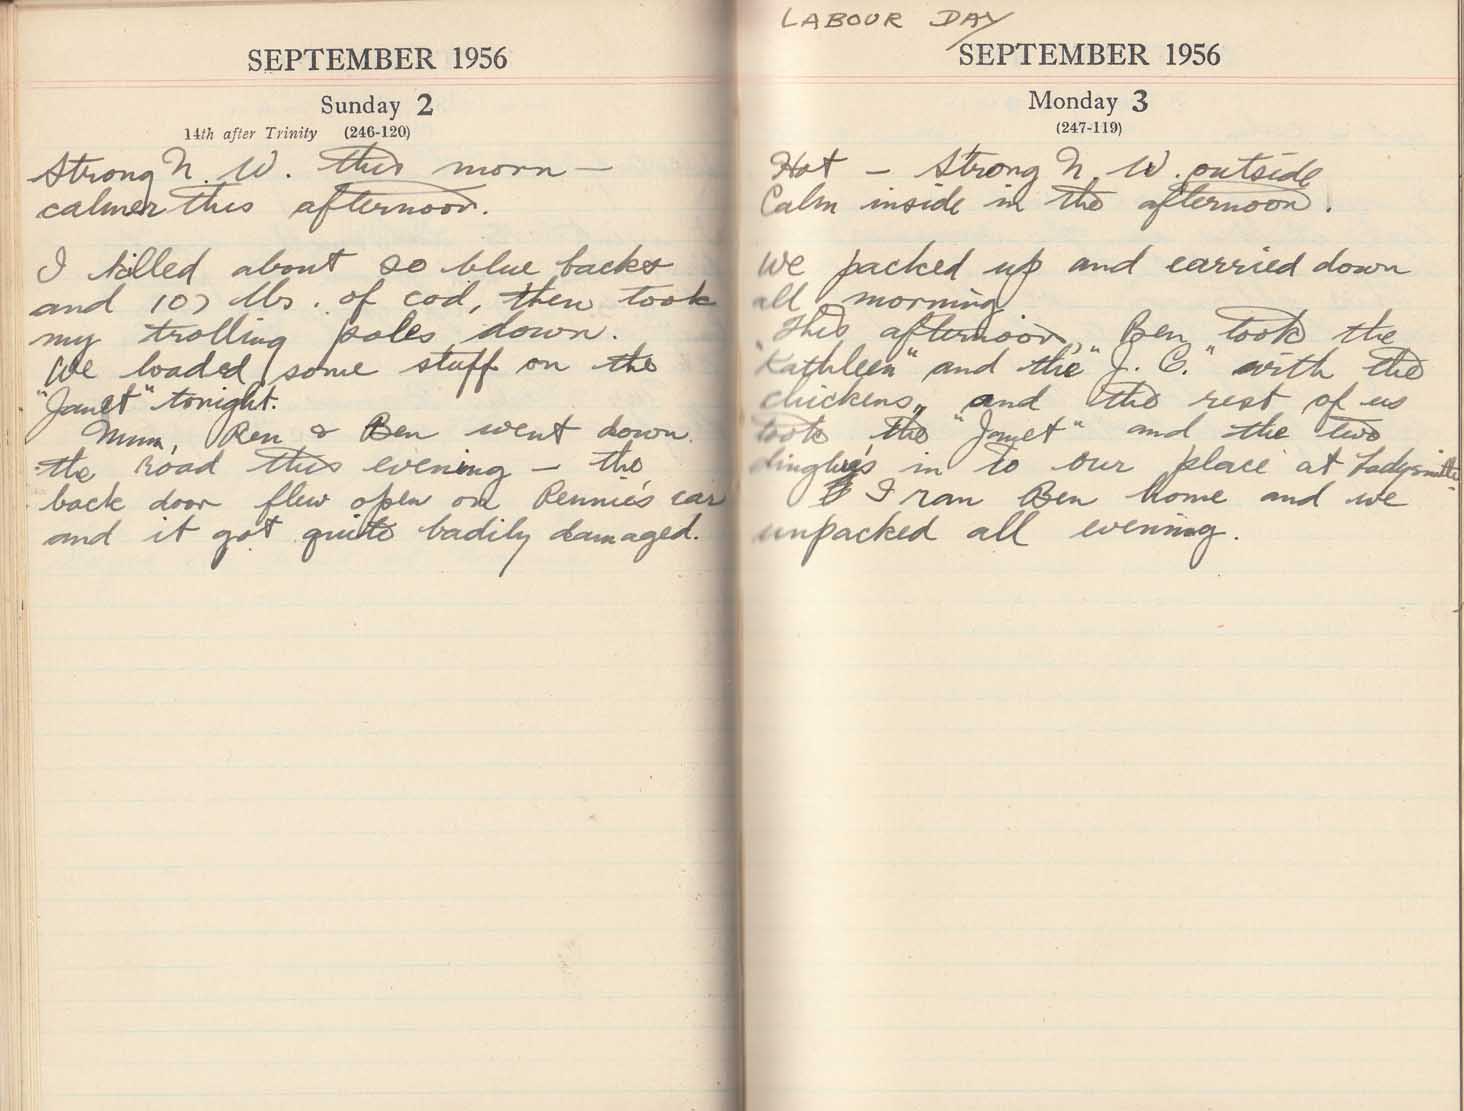 SEPTEMBER 1956
Sunday 2
14th after Trinity (246-120)
Strong N. W. this morn —
calmer this afternoon.
I killed about 20 blue backs
and 107 lbs. of cod, then took
my trolling poles down.
We loaded some stuff on the
"Janet" tonight.
Mum, Ren & Ben went down
the road this evening — the
back door flew open on Rennie's car
and it got quite badily damaged.
LABOUR DAY
SEPTEMBER 1956
Monday 3
(247-119)
Hot — Strong N. W. outside
Calm inside in the afternoon.
We packed up and carried down
all morning
This afternoon, Ben took the
"Kathleen" and the "J. C." with the
chickens, and the rest of us
took the "Janet" and the two
dinghys in to our place at Ladysmith.
I ran Ben home and we
unpacked all evening.